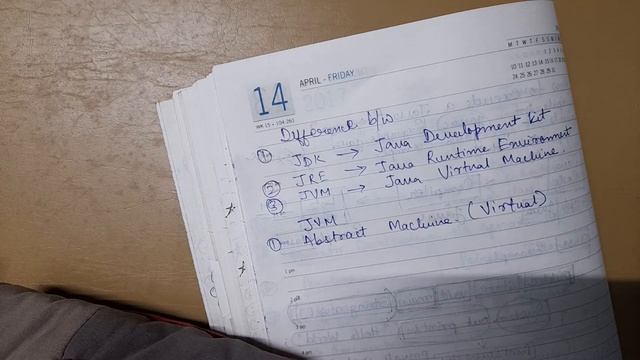 14
APRIL - FRIDAY
WK 15 • 104-261
M T W T F S S
10 11 12 13 14 15 16
24 25 26 27 28 29 30
Difference b/w
① JDK → Java Development kit
② JRE → Java Runtime Environment
③ JVM → Java Virtual Machine.
JVM
① Abstract Machine. (Virtual)
1 pm
2 pm
3 pm
4 pm